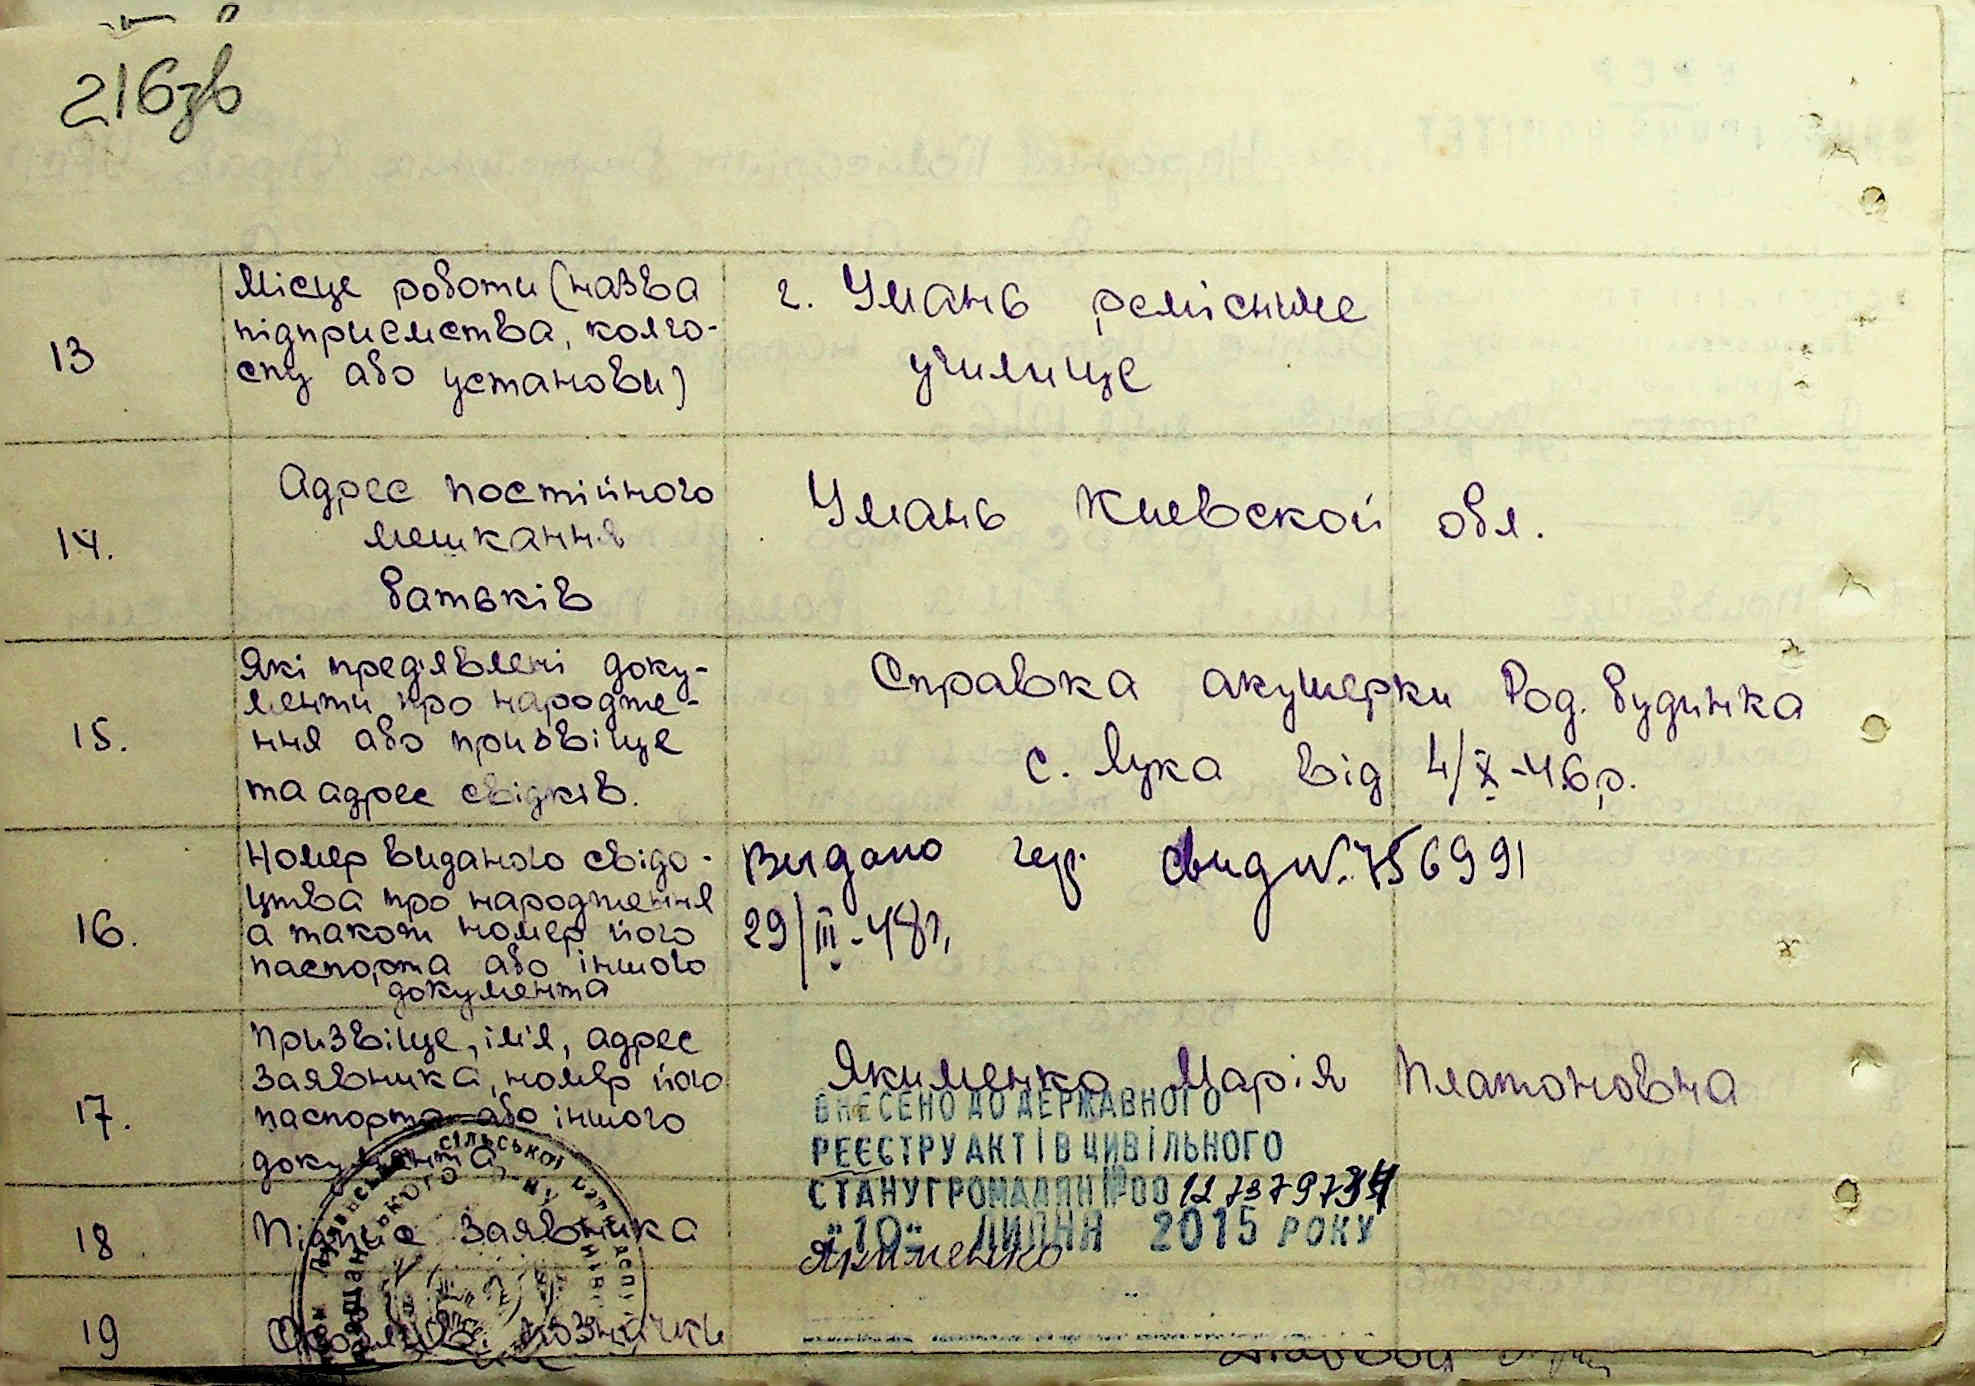 216зв
13
Місце роботи (назва
підприємства, колго-
спу або установи)
г. Умань ремісниче
училище
14.
Адрес постійного
мешкання
батьків
Умань Киевской обл.
15.
Які пред'явлені доку-
менти про народже-
ння або призвіще
та адрес свідків.
Справка акушерки Род. будинка
с. Лука від 4/X-46р.
16.
Номер виданого свідо-
цтва про народження
а також номер його
паспорта або іншого
документа
Видано свид №. 756991
29/III-48г,
17.
Призвіще, ім'я, адрес
заявника, номер його
паспорта або іншого
документа
Якименко Марія Платоновна
ВНЕСЕНО ДО ДЕРЖАВНОГО
РЕЄСТРУ АКТІВ ЦИВІЛЬНОГО
СТАНУ ГРОМАДЯН №00
"10" ЛИПНЯ 2015 РОКУ
18
Підпис заявника
Якименко
19
Особливі позначки
сільської